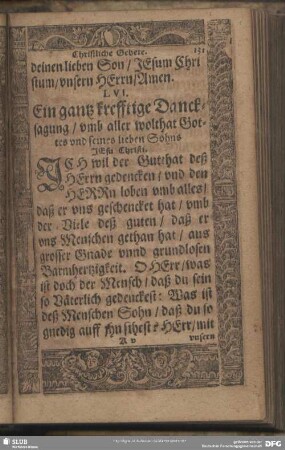 Christliche Gebete. 131
deinen lieben Son / JEsum Chri
stum / vnsern HErrn / Amen.
LVI.
Ein gantz krefftige Danck-
sagung / vmb aller wolthat Got-
tes vnd seines lieben Sohns
JEsu Christi.
JCH wil der Gutthat deß
HErrn gedencken / vnd den
HERRn loben vmb alles /
daß er vns geschencket hat / vmb
der Viele deß guten / daß er
vns Menschen gethan hat / aus
grosser Gnade vnnd grundlosen
Barmhertzigkeit. O HErr / was
ist doch der Mensch / daß du sein
so Väterlich gedenckest: Was ist
deß Menschen Sohn / daß du so
gnedig auff jhn sihest? HErr / mit
R v vnsern
SLUB
DFG